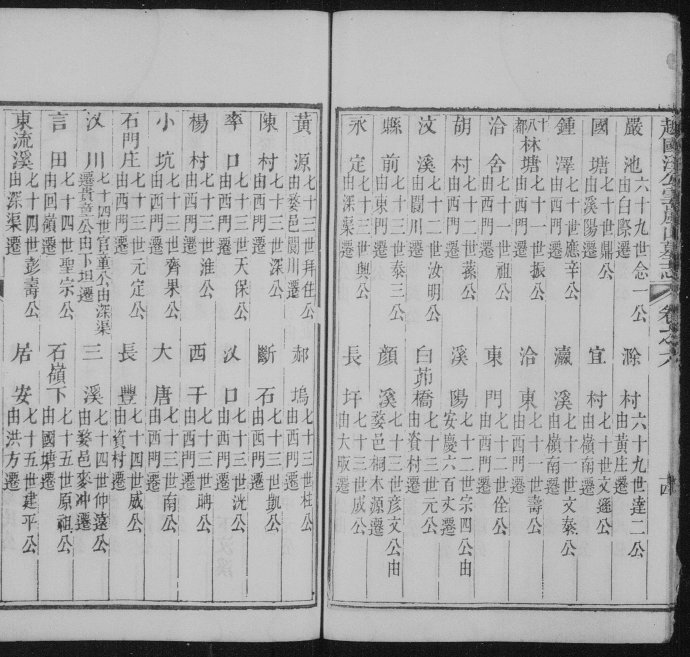 越國汪公
卷之六
嚴池 六十九世念一公由臼際遷
滁村 六十九世達二公由黃庄遷
國塘 七十世鼎公由溪陽遷
宜村 七十世文遜公由嶺南遷
鍾澤 七十一世應辛公由西門遷
瀛溪 七十一世文泰公由嶺南遷
十八都林塘 七十一世振公由西門遷
洽東 七十一世壽公由西門遷
洽舍 七十一世祖公由西門遷
東門 七十二世佺公由西門遷
胡村 七十二世藻公由西門遷
溪陽 七十二世宗四公由安慶六百丈遷
汶溪 七十二世汝明公由閶川遷
臼茆橋 七十三世元公由資村遷
縣前 七十三世泰三公由東門遷
顔溪 七十三世彦文公由婺邑桐木源遷
永定 七十三世輿公由深渠遷
長圩 七十三世成公由大畈遷
黃源 七十三世拜住公由婺邑閶川遷
郝塢 七十三世桂公由西門遷
陳村 七十三世深公由西門遷
斷石 七十三世凱公由西門遷
率口 七十三世天保公由西門遷
汊口 七十三世洸公由西門遷
楊村 七十三世淮公由西門遷
西干 七十三世聃公由西門遷
小坑 七十三世齊果公由西門遷
大唐 七十三世南公由西門遷
石門庄 七十三世元定公由西門遷
長豐 七十四世威公由資村遷
汊川 七十四世官童公由深渠遷貴童公由下坦遷
三溪 七十四世仲遠公由婺邑麥冲遷
言田 七十四世聖宗公由回嶺遷
石嶺下 七十五世原祖公由國塘遷
東流溪 七十四世彭壽公由深渠遷
居安 七十五世建平公由洪方遷